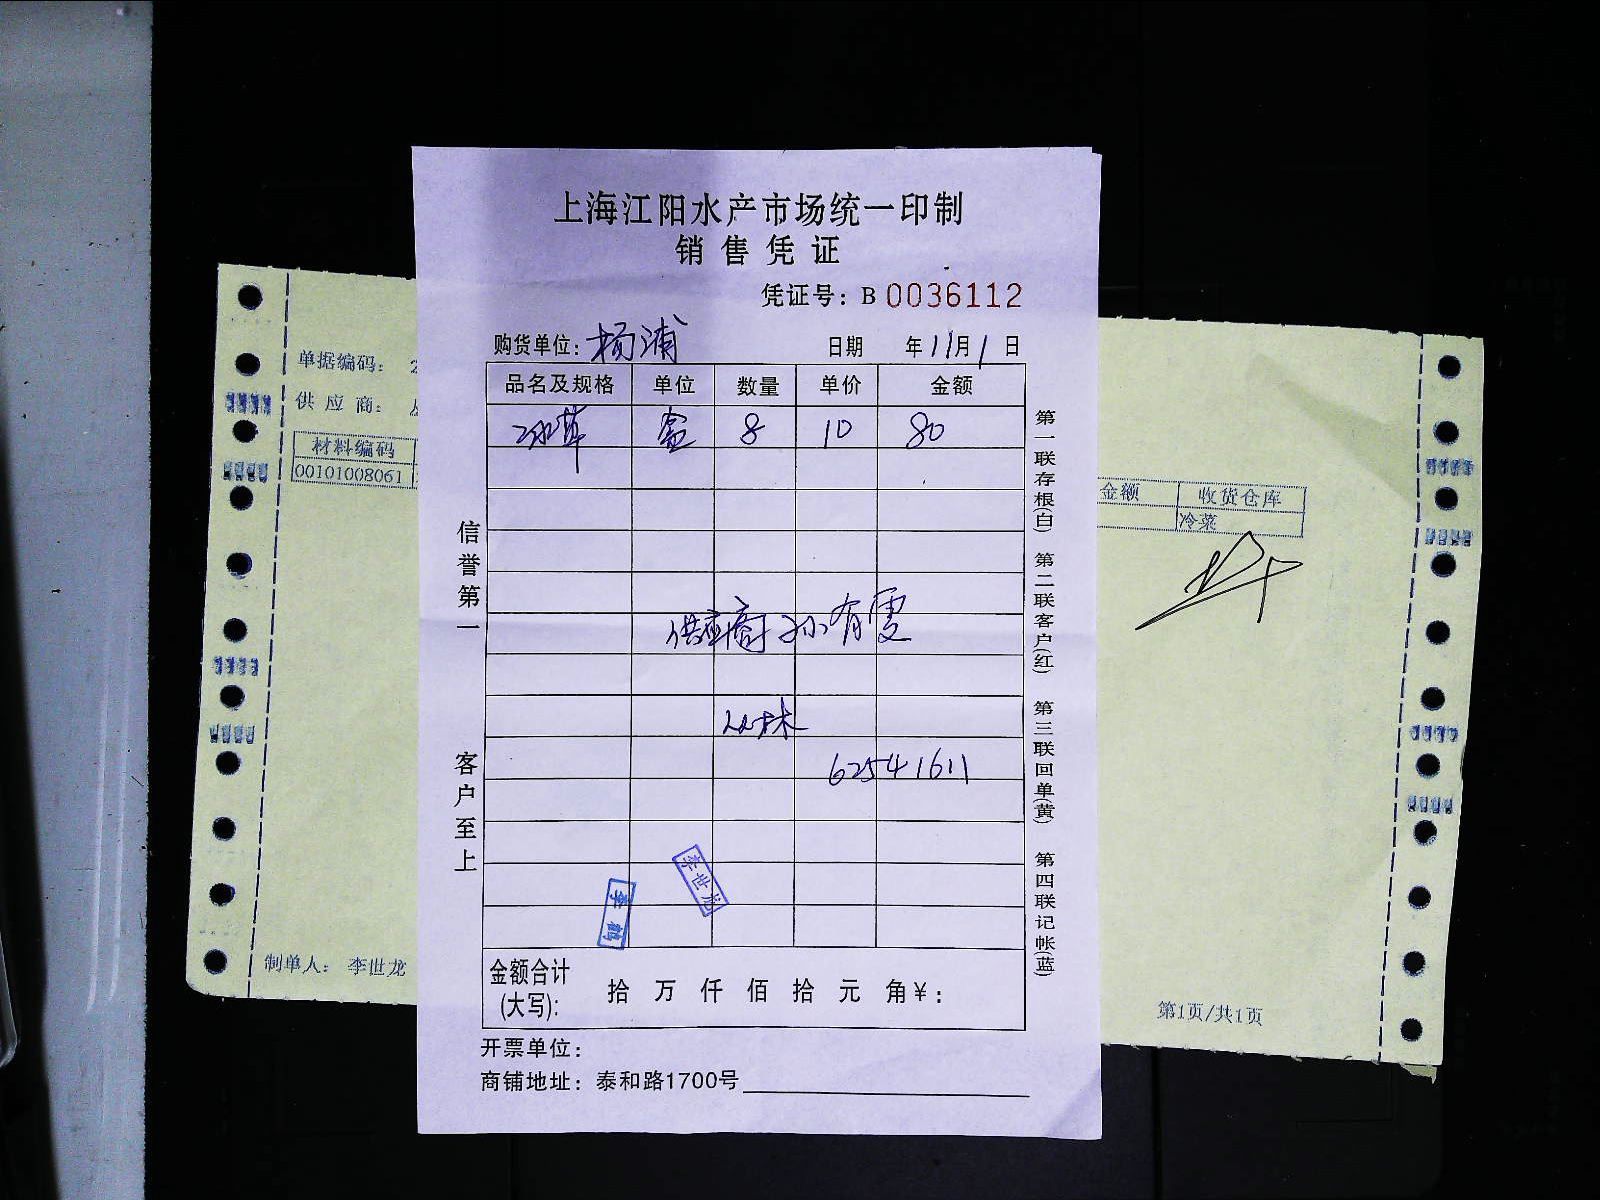 上海江阳水产市场统一印制
销售凭证
凭证号：B 0036112
购货单位：杨浦 日期 年11月1日
品名及规格 单位 数量 单价 金额
冰草 盒 8 10 80
供应商 孙有雯
丛林
62541611
李世龙
李鹤
金额合计(大写)： 拾 万 仟 佰 拾 元 角￥：
开票单位：
商铺地址：泰和路1700号
信誉第一
客户至上
第一联存根(白) 第二联客户(红) 第三联回单(黄) 第四联记帐(蓝)
单据编码： 2
供应商：
材料编码
00101008061
制单人： 李世龙
金额 收货仓库
冷菜
第1页/共1页